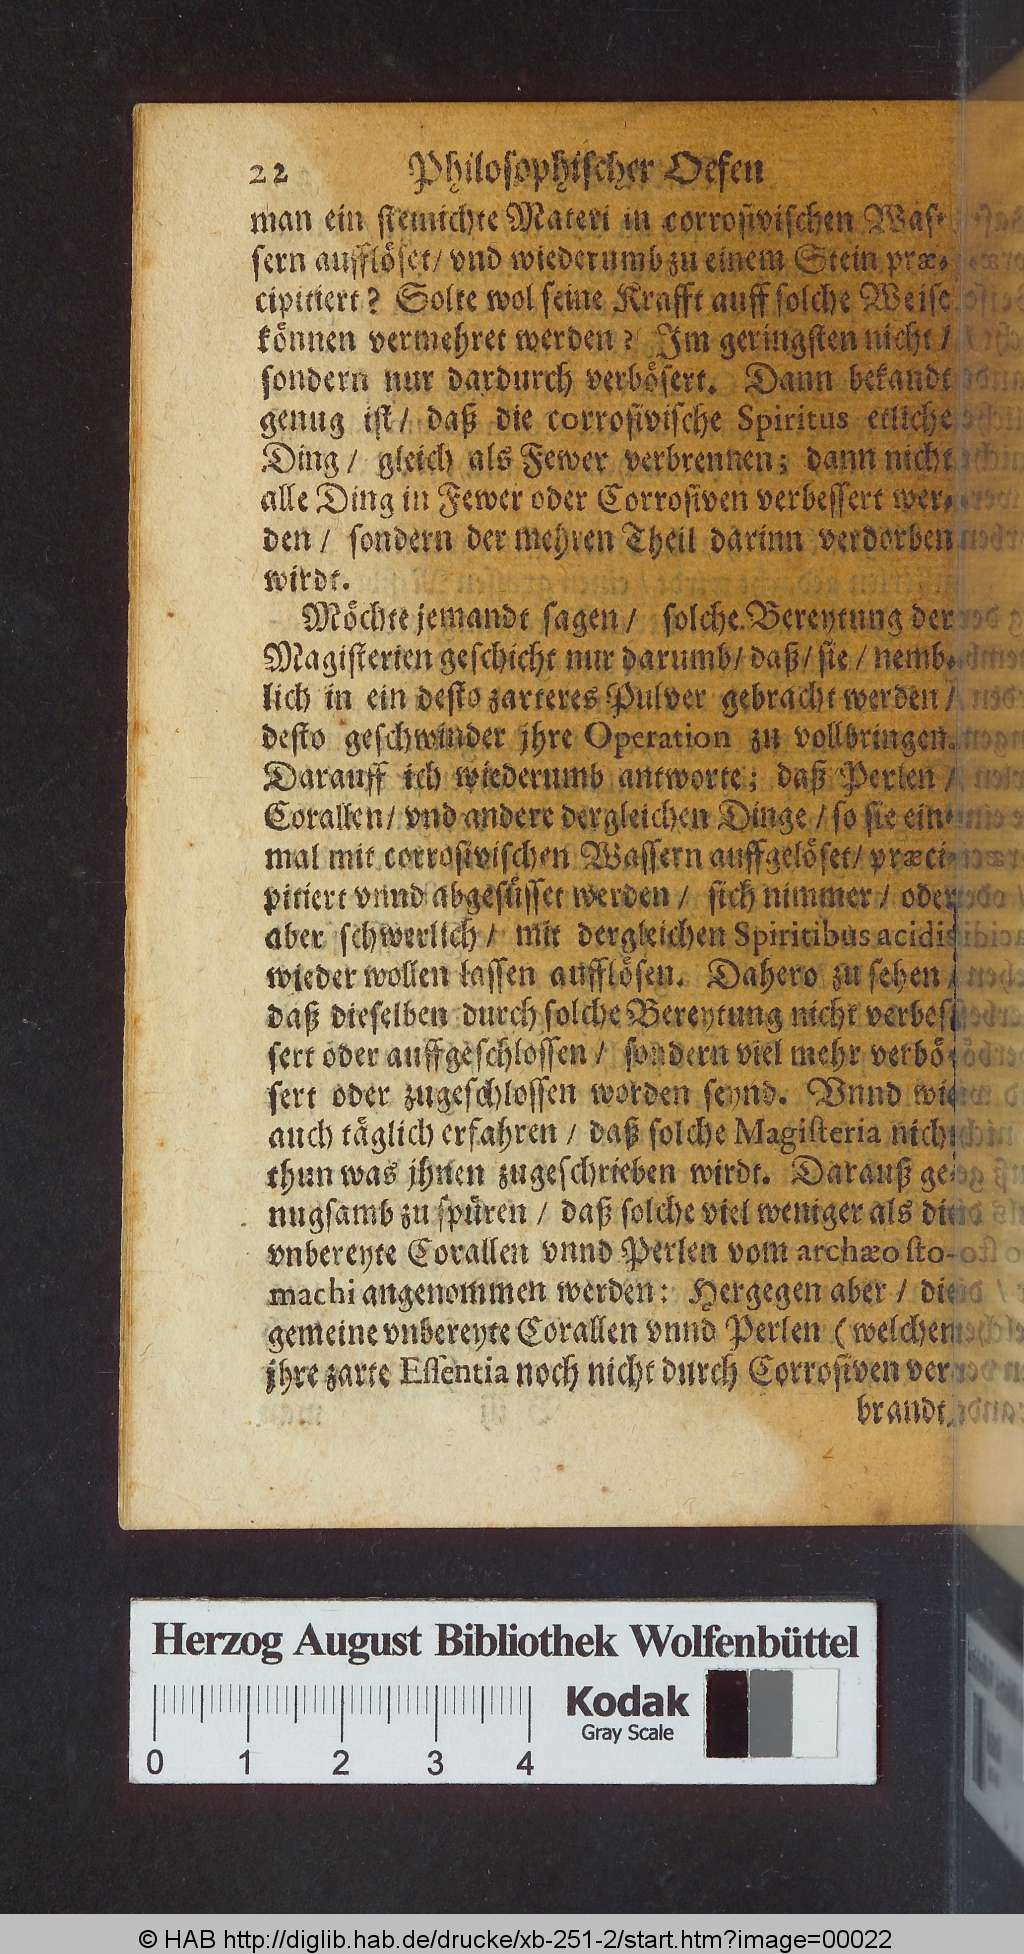 22 Philosophischer Oefen
man ein steinichte Materi in corrosivischen Was-
sern aufflöset/ vnd wiederumb zu einem Stein præ-
cipitiert? Solte wol seine Krafft auff solche Weise
können vermehret werden? Im geringsten nicht /
sondern nur dardurch verbösert. Dann bekandt
genug ist/ daß die corrosivische Spiritus etliche
Ding / gleich als Fewer verbrennen; dann nicht
alle Ding in Fewer oder Corrosiven verbessert wer-
den / sondern der mehren Theil darinn verdorben
wirdt.
Möchte jemandt sagen / solche Bereytung der
Magisterien geschicht nur darumb/ daß/ sie / nemb-
lich in ein desto zarteres Pulver gebracht werden /
desto geschwinder jhre Operation zu vollbringen.
Darauff ich wiederumb antworte; daß Perlen /
Corallen/ vnd andere dergleichen Dinge / so sie ein-
mal mit corrosivischen Wassern auffgelöset/ præci-
pitiert vnnd abgesüsset werden / sich nimmer / oder
aber schwerlich / mit dergleichen Spiritibus acidis
wieder wollen lassen aufflösen. Dahero zu sehen /
daß dieselben durch solche Bereytung nicht verbes-
sert oder auffgeschlossen / sondern viel mehr verbö-
sert oder zugeschlossen worden seynd. Vnnd wie
auch täglich erfahren / daß solche Magisteria nicht
thun was jhnen zugeschrieben wirdt. Darauß ge-
nugsamb zu spüren / daß solche viel weniger als die
vnbereyte Corallen vnnd Perlen vom archæo sto-
machi angenommen werden: Hergegen aber / die
gemeine vnbereyte Corallen vnnd Perlen (welchen
jhre zarte Essentia noch nicht durch Corrosiven ver-
brandt,
Herzog August Bibliothek Wolfenbüttel
Kodak
Gray Scale
0 1 2 3 4
© HAB http://diglib.hab.de/drucke/xb-251-2/start.htm?image=00022